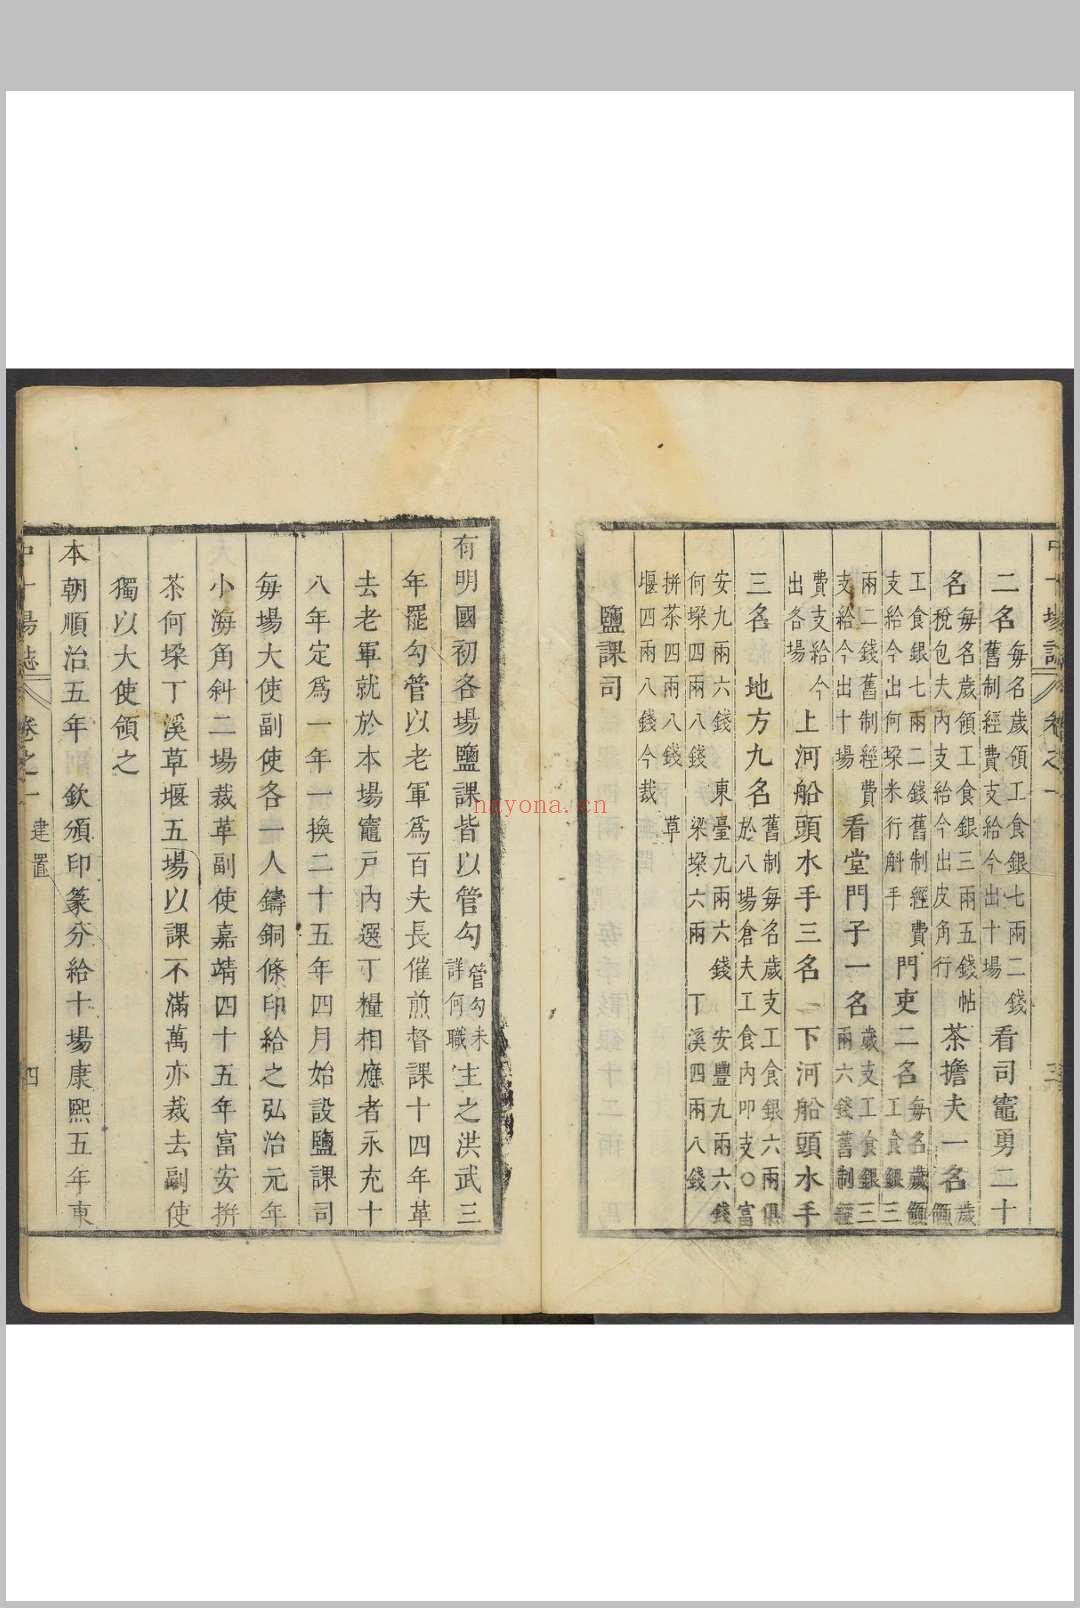 中十場誌 卷之一 三
二名每名歲領工食銀七兩二錢舊制經費支給今出十場看司竈勇二十
名每名歲領工食銀三兩五錢帖稅包夫內支給今出皮角行茶擔夫一名歲領
工食銀七兩二錢舊制經費支給今出何垜米行斛手門吏二名每名歲領工食銀三
兩二錢舊制經費支給今出十場看堂門子一名歲支工食銀三兩六錢舊制經
費支給今出各場上河船頭水手三名下河船頭水手
三名地方九名舊制每名歲支工食銀六兩俱於八場倉夫工食內叩支○富
安九兩六錢東臺九兩六錢安豐九兩六錢何垜四兩八錢梁垜六兩丁溪四兩八錢
拼茶四兩八錢草堰四兩八錢今裁
鹽課司
有明國初各場鹽課皆以管勾管勾未詳何職主之洪武三
年罷勾管以老軍爲百夫長催煎督課十四年革
去老軍就於本場竈戶內選丁糧相應者永充十
八年定爲一年一換二十五年四月始設鹽課司
每場大使副使各一人鑄銅條印給之弘治元年
小海角斜二場裁革副使嘉靖四十五年富安拼
茶何垜丁溪草堰五場以課不滿萬亦裁去副使
獨以大使領之
本朝順治五年欽頒印篆分給十場康熙五年東
中十場誌 卷之一 建置 四
nayona.cn